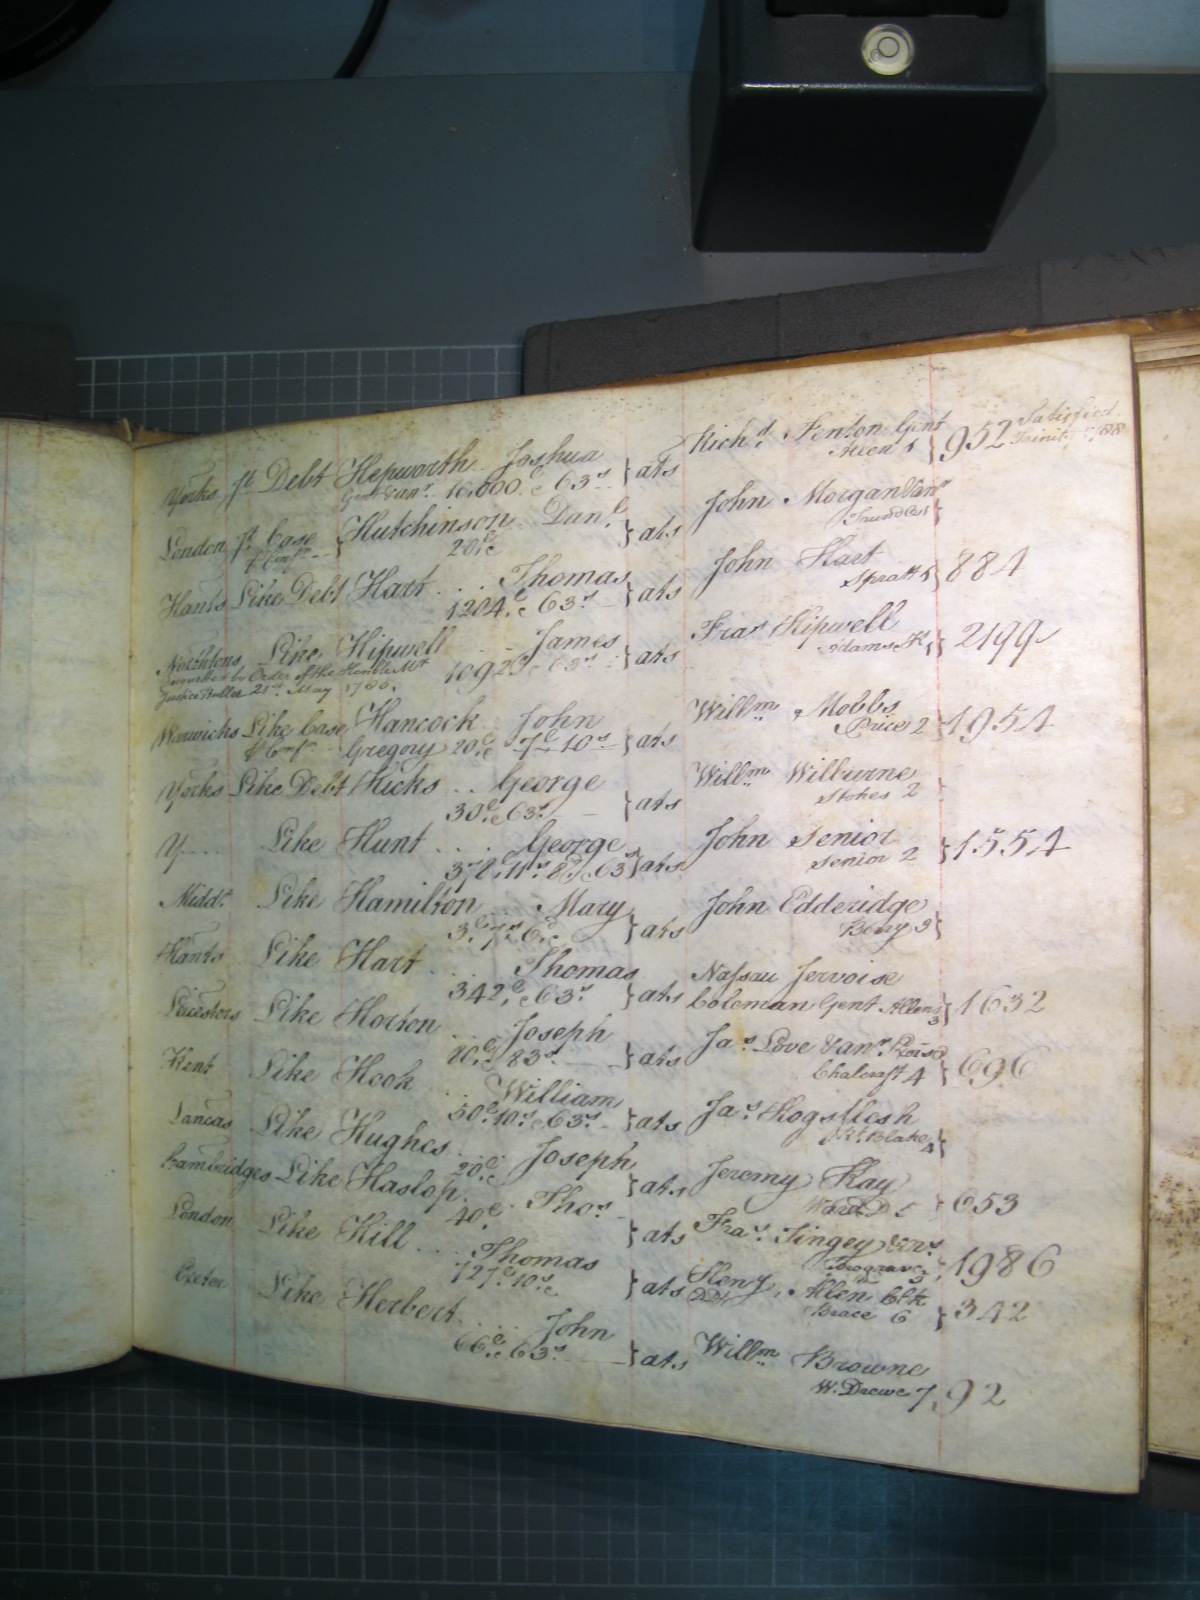 Yorks Jt Debt Hepworth Joshua } ats Richd Fenton Gent } 952 Satisfied
Gent & anr 10,000£ & 63s Allen 1 Trinity
London Jt Case Hutchinson Danl } ats John Morgan & anr }
20£ &
Hants Like Debt Hart .. Thomas } ats John Hart } 884
1204£ & 63s Spratt 1
Northtons Like Hipwell .. James } ats Fras Hipwell } 2199
by Order of the Honble Mr 1092£ & 63s Adams
Justice Buller 21st May 1785.
Warwicks Like Case Hancock John } ats Willm Mobbs } 1954
Gregory 20£ & 7£ 10s Price 2
Yorks Like Debt Hicks .. George } ats Willm Wilburne }
30£ & 63s Stokes 2
Y.... Like Hunt .... George } ats John Senior } 1554
378£ 11s 8d & 63s Senior 2
Middx Like Hamilton .. Mary } ats John Edderidge }
3£ 7s 6d & Berry 3
Hants Like Hart .... Thomas } ats Nassau Jervoise
342£ & 63s Coleman Gent Allen 3 } 1632
Like Horton ... Joseph } ats Jas Love & anr
10£ & 83s Chalcraft 4 } 696
Kent Like Hook .. William } ats Jas Hogsflesh
50£ 10s & 63s Blake 4 }
Lancas Like Hughes .. Joseph } ats Jeremy Kay
20£ & Ward } 653
Cambridges Like Haslop. Thos } ats Fras Tingey & ors
40£ } 1986
London Like Hill .... Thomas } ats Heny Allen Clk
127£ 10s & Brace 6 } 342
Exeter Like Herbert .... John } ats Willm Browne
66£ & 63s W. Drewe 7, 92